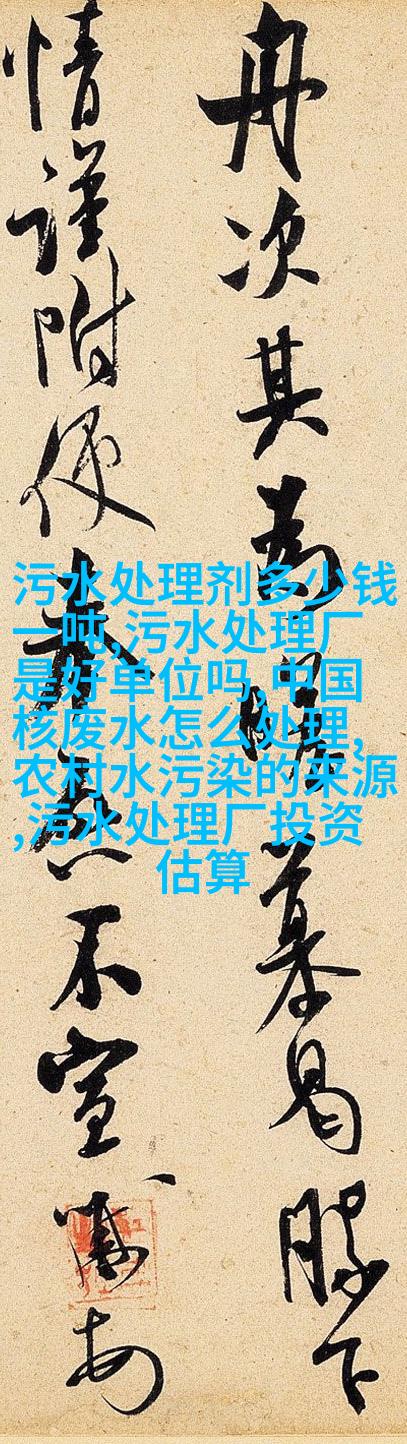 舟次其爲瞻慕曷勝下
情謹附使奉啓不宣
污水处理剂多少钱
一吨,污水处理厂
是好单位吗,中国
核废水怎么处理,
农村水污染的来源
,污水处理厂投资
估算